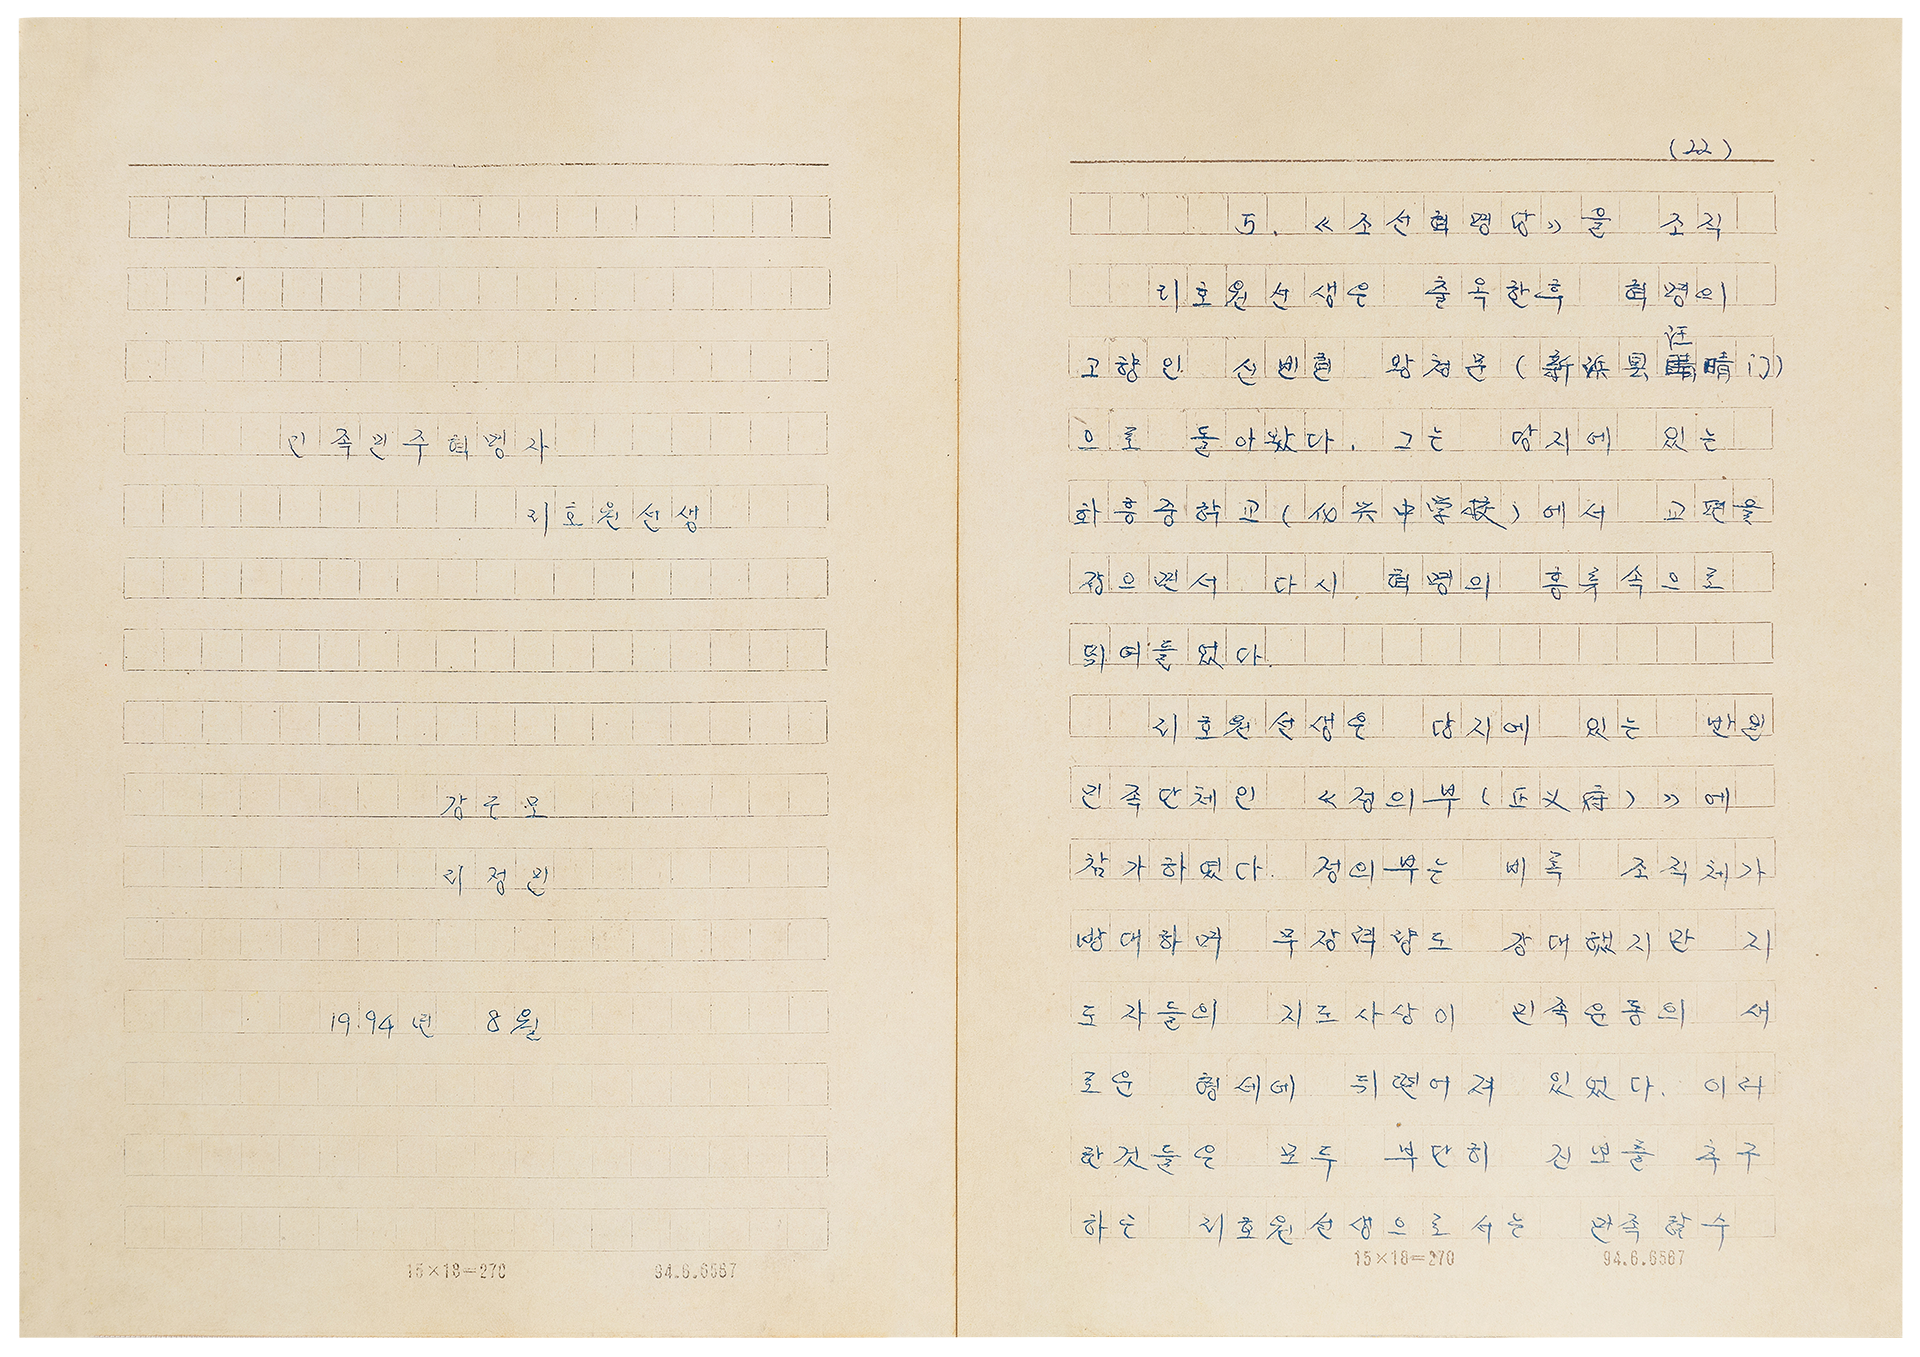 민족민주혁명자
리호원선생
강주모
리정민
1994년 8월
15×18=270 94.6.6567
(22)
5. 《조선혁명당》을 조직
리호원선생은 출옥한후 혁명의
고향인 신빈현 왕청문(新浜県 汪晴门)
으로 돌아왔다. 그는 당지에 있는
화흥중학교(化兴中学校)에서 교편을
잡으면서 다시 혁명의 흥류속으로
뛰여들었다.
리호원선생은 당지에 있는 반일
민족단체인 《정의부(正义府)》에
참가하였다. 정의부는 비록 조직체가
방대하며 무장력량도 강대했지만 지
도자들의 지도사상이 민족운동의 새
로운 형세에 뒤떨어져 있었다. 이러
한것들은 모두 부단히 진보를 추구
하는 리호원선생으로서는 만족할수
15×18=270 94.6.6567